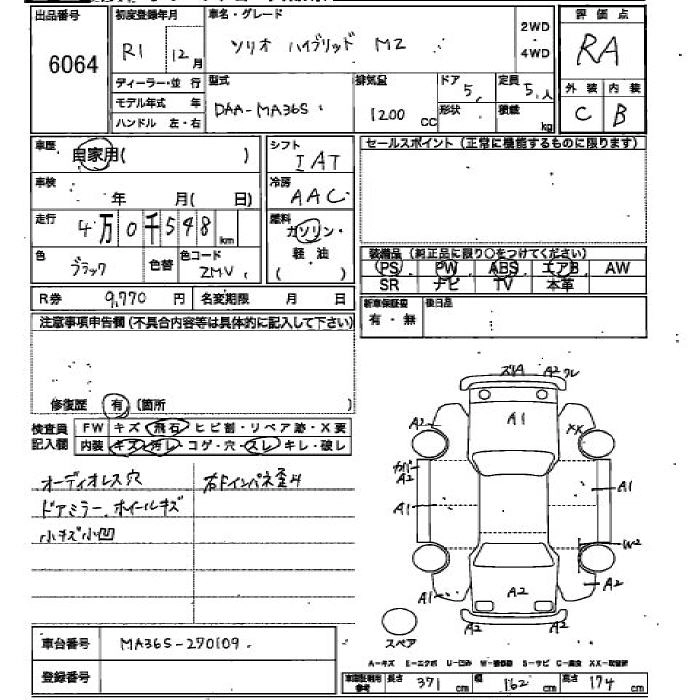 出品番号
6064
初度登録年月
R1 12月
車名・グレード
ソリオ ハイブリッド MZ
2WD
4WD
評価点
RA
外装 内装
C B
ディーラー・並行
モデル年式 年
ハンドル 左・右
型式
DAA-MA36S
排気量
1200 cc
ドア
5
形状
定員
5人
積載
kg
車歴
自家用( )
車検
年 月( 日)
走行
4万0千548km
色
ブラック
色替
色コード
ZMV
シフト
IAT
冷房
AAC
燃料
ガソリン・
軽・油
( )
セールスポイント(正常に機能するものに限ります)
装備品(純正品に限り○をつけてください)
PS PW ABS エアB AW
SR ナビ TV 本革
R券 9,770円 名変期限 月 日
新車保証書
有・無
後日品
注意事項申告欄(不具合内容等は具体的に記入して下さい)
修復歴 有(箇所 )
検査員
記入欄
FW キズ・飛石・ヒビ割・リペア跡・X要
内装 キズ・汚レ・コゲ・穴・スレ・キレ・破レ
オーディオレス穴
右ドインパネ歪み
ドアミラー、ホイールキズ
小キズ小凹
ズリA A2 ワレ
A2 A1 XX
カバー
A2
A1 A1
W2
A1 A2 A2
A2 A2
スペア
A-キズ E-エクボ U-凹み W-補修跡 S-サビ C-腐食 XX-取替済
車台番号 MA36S-270109
登録番号
車庫証明用
参考
長さ 371 cm 幅 162 cm 高さ 174 cm